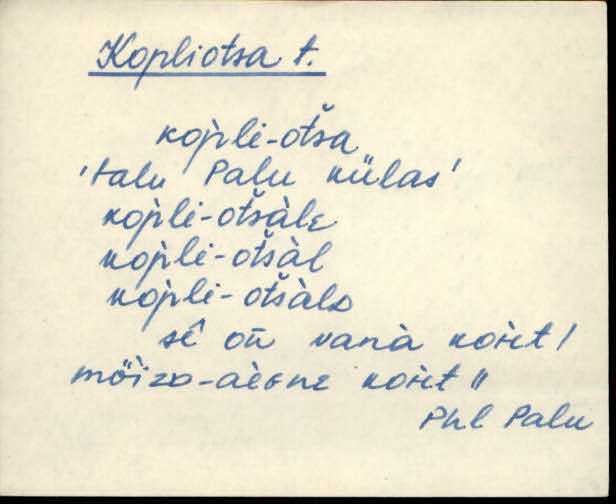 Kopliotsa t.
kop̀li-otša
'talu Palu külas'
kop̀li-otšàlɛ
kop̀li-otšàl
kop̀li-otšàlᴅ
sê on̄ vanà koht /
möìzᴅ-àèɢnɛ koht //
Phl Palu